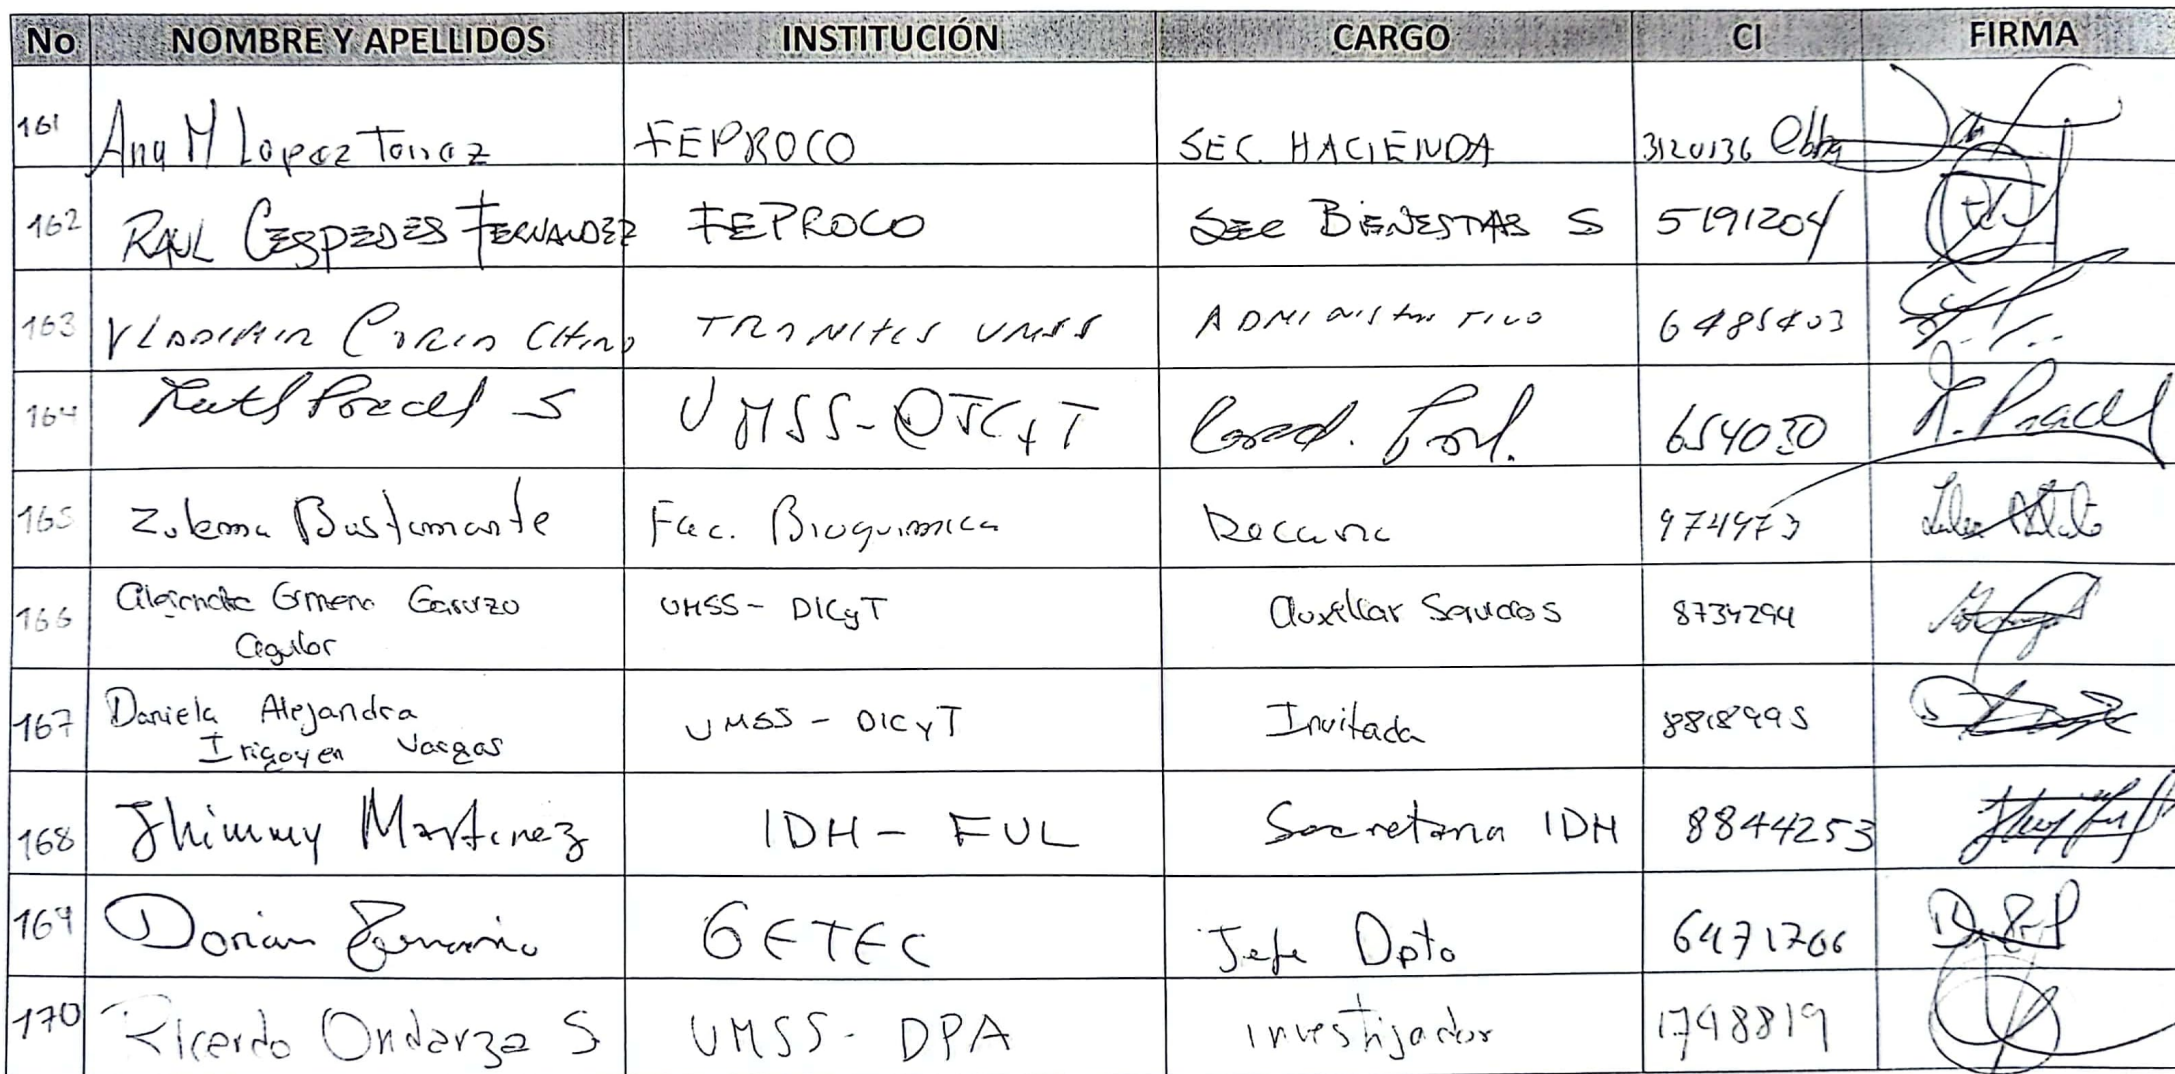 No NOMBRE Y APELLIDOS INSTITUCIÓN CARGO CI FIRMA
161 Ana M Lopez Torrez FEPROCO SEC. HACIENDA 3120136 Cbba
162 RAUL CESPEDES FERNANDEZ FEPROCO SEC BIENESTAR S 5191204
163 VLADIMIR TRAMITES UMSS ADMINISTRATIVO 6485403
164 Ruth Pozcel S UMSS- Coord. 654030 R.
165 Zulema Bustamante Fac. Bioquimica Decana 974973
166 Gimena Garuzo UMSS- DICyT Auxiliar 8734294
Aguilar
167 Daniela Alejandra UMSS - DICYT Invitada 8818995
Irigoyen Vargas
168 Jhimmy Martinez IDH - FUL Secretaria IDH 8844253
169 Dorian GETEC Jefe Dpto 6471706
170 Ricardo Ondarza S UMSS- DPA investijador 1798819